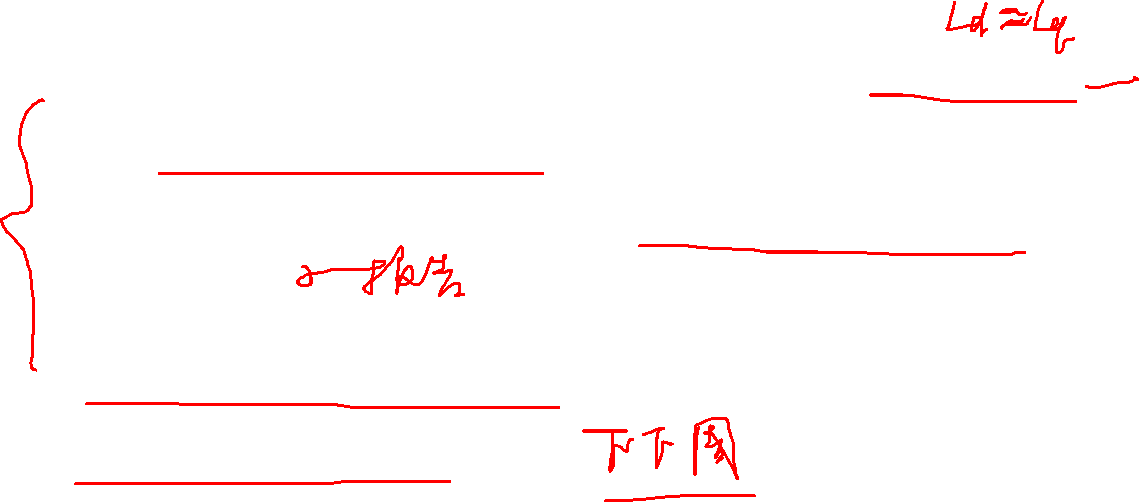 Ld≈Lq
报告
下下周